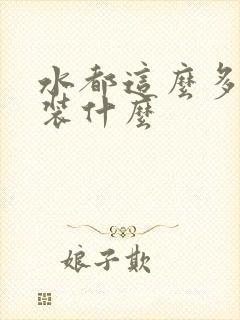 水都這麼多
裝什麼
娘子欺